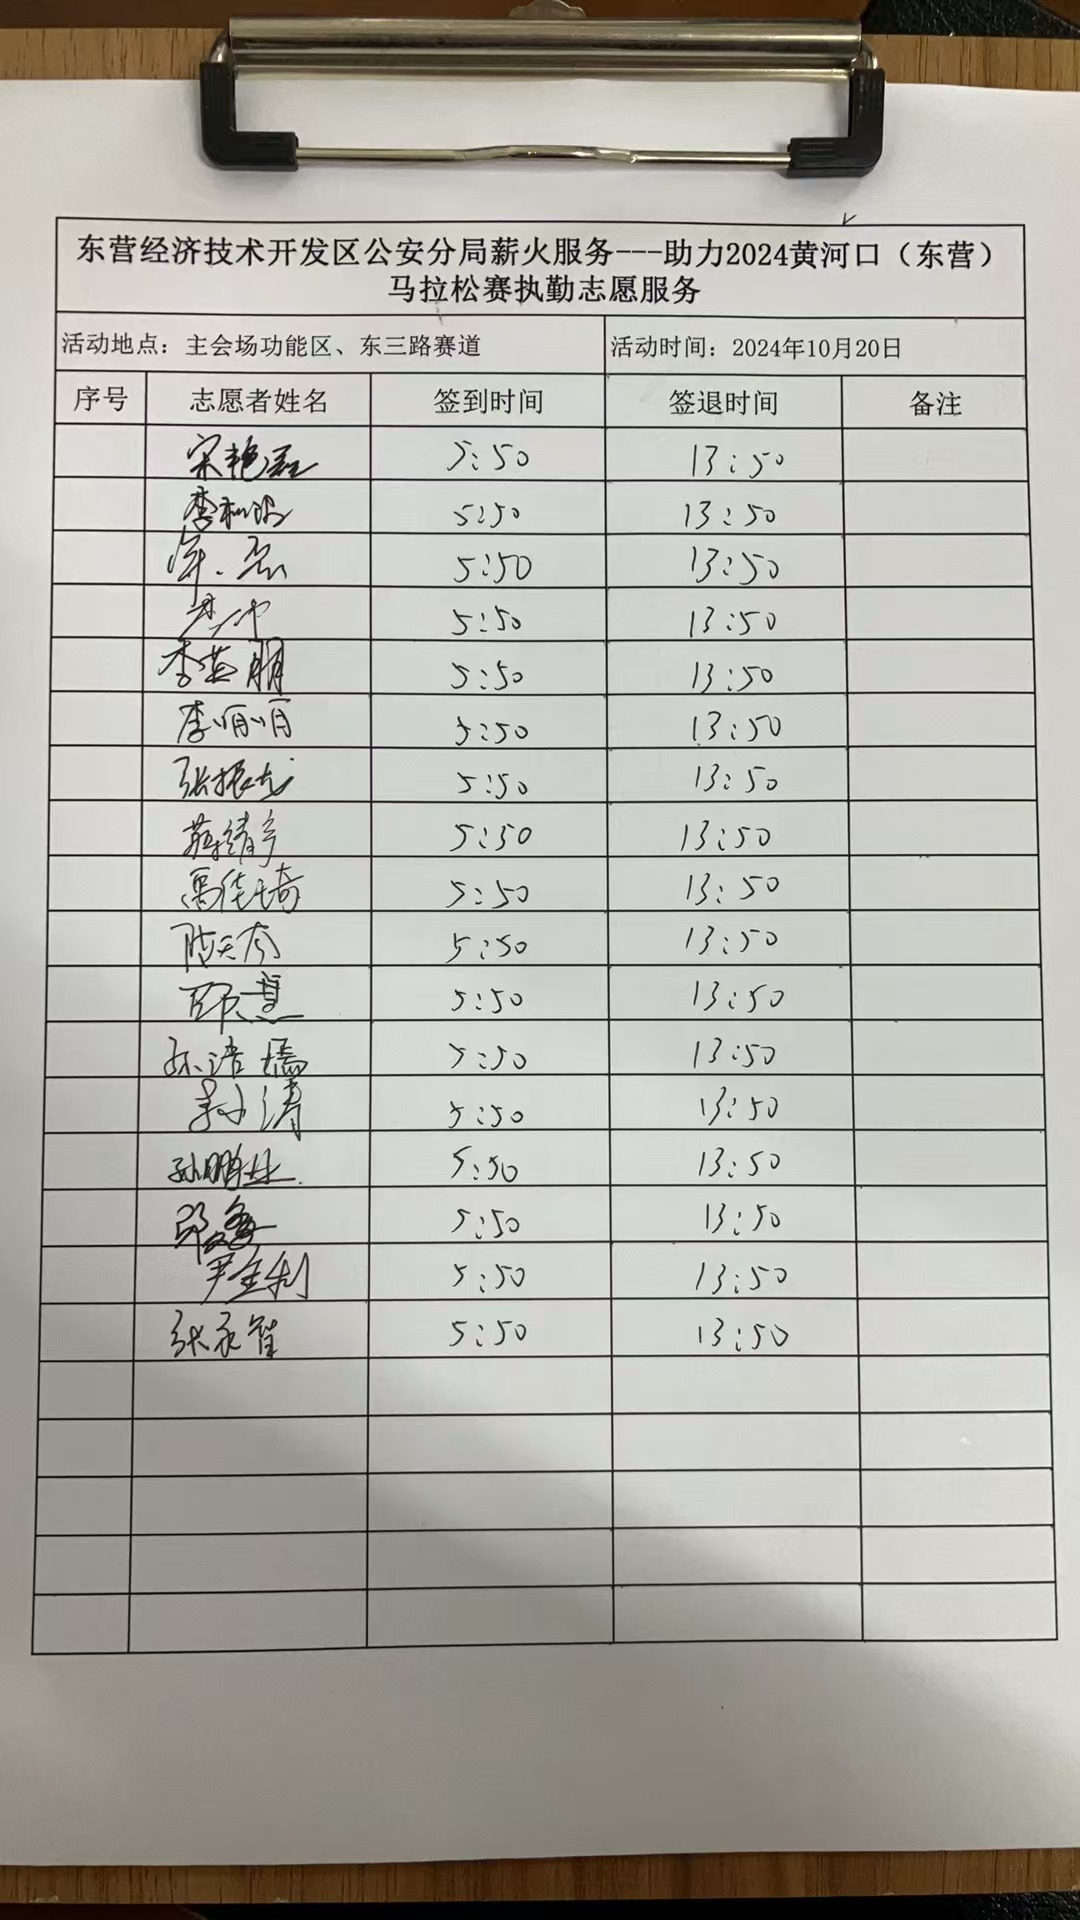 东营经济技术开发区公安分局薪火服务---助力2024黄河口（东营）
马拉松赛执勤志愿服务
活动地点：主会场功能区、东三路赛道 活动时间：2024年10月20日
序号 志愿者姓名 签到时间 签退时间 备注
宋艳磊 5:50 13:50
5:50 13:50
5:50 13:50
5:50 13:50
李英朋 5:50 13:50
李娟娟 5:50 13:50
张振龙 5:50 13:50
5:50 13:50
5:50 13:50
5:50 13:50
5:50 13:50
5:50 13:50
孙涛 5:50 13:50
5:50 13:50
5:50 13:50
尹全利 5:50 13:50
张永智 5:50 13:50